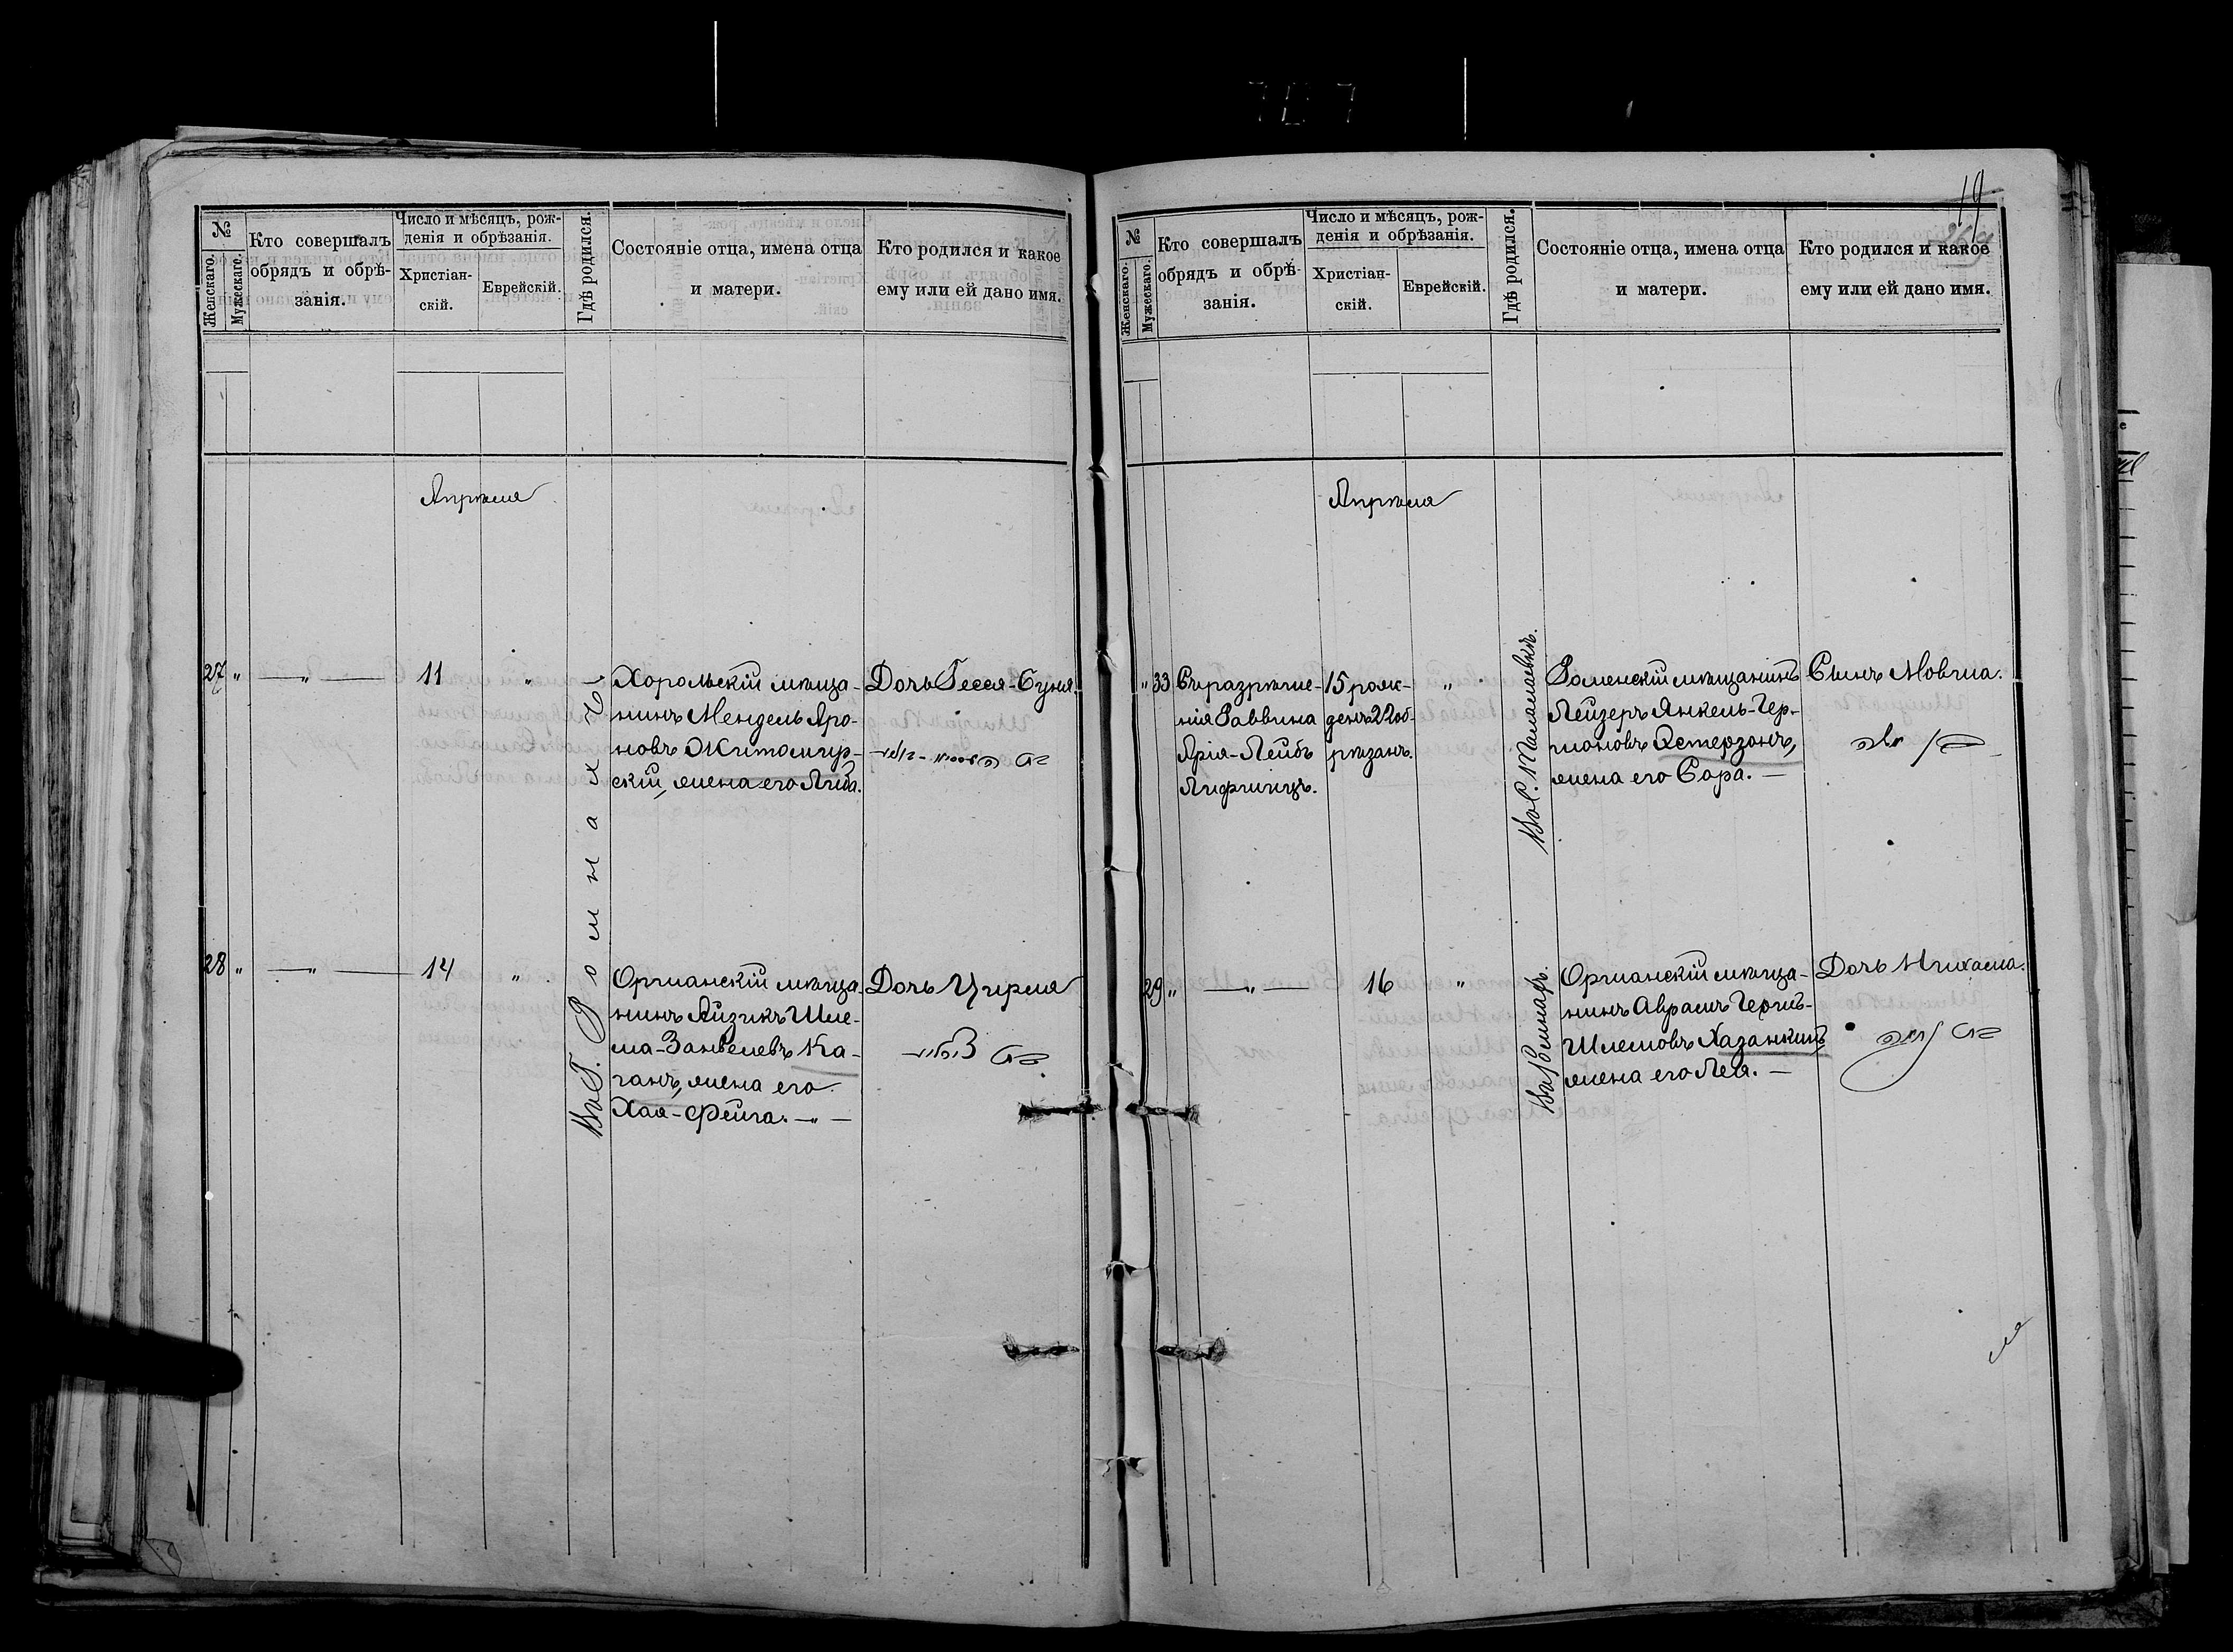 19
№
Женскаго.
Мужескаго.
Кто совершалъ
обрядъ и обрѣ-
занія.
Число и мѣсяцъ, рож-
денія и обрѣзанія.
Христіан-
скій.
Еврейскій.
Гдѣ родился.
Состояніе отца, имена отца
и матери.
Кто родился и какое
ему или ей дано имя.
Апрѣля
27 " — " — 11 "
Въ Г. Ромнахъ
Хорольскій мѣща-
нинъ Мендель Аро-
новъ Житомир-
скій, жена его Либа.
Дочь Гесся-Буня.
28 " — " — 14 "
Оршанскій мѣща-
нинъ Айзикъ Шле-
ма-Занвелевъ Ка-
ганъ, жена его
Хая-Фейга. — " —
Дочь Цирля
№
Женскаго.
Мужескаго.
Кто совершалъ
обрядъ и обрѣ-
занія.
Число и мѣсяцъ, рож-
денія и обрѣзанія.
Христіан-
скій.
Еврейскій.
Гдѣ родился.
Состояніе отца, имена отца
и матери.
Кто родился и какое
ему или ей дано имя.
Апрѣля
" 33
Съ разрѣше-
нія Раввина
Арія-Лейбъ
Лифшицъ.
15 рож-
денъ 22 об-
рѣзанъ.
"
Роменскій мѣщанинъ
Лейзеръ Янкель-Гер-
шоновъ Остерзонъ,
жена его Сора. —
Сынъ Мовша.
בן משה
29 " — " — 16 "
Оршанскій мѣща-
нинъ Аврамъ Гершъ-
Шлемовъ Хазанкинъ
жена его Лея. —
Дочь Нихама.
בת נחמה